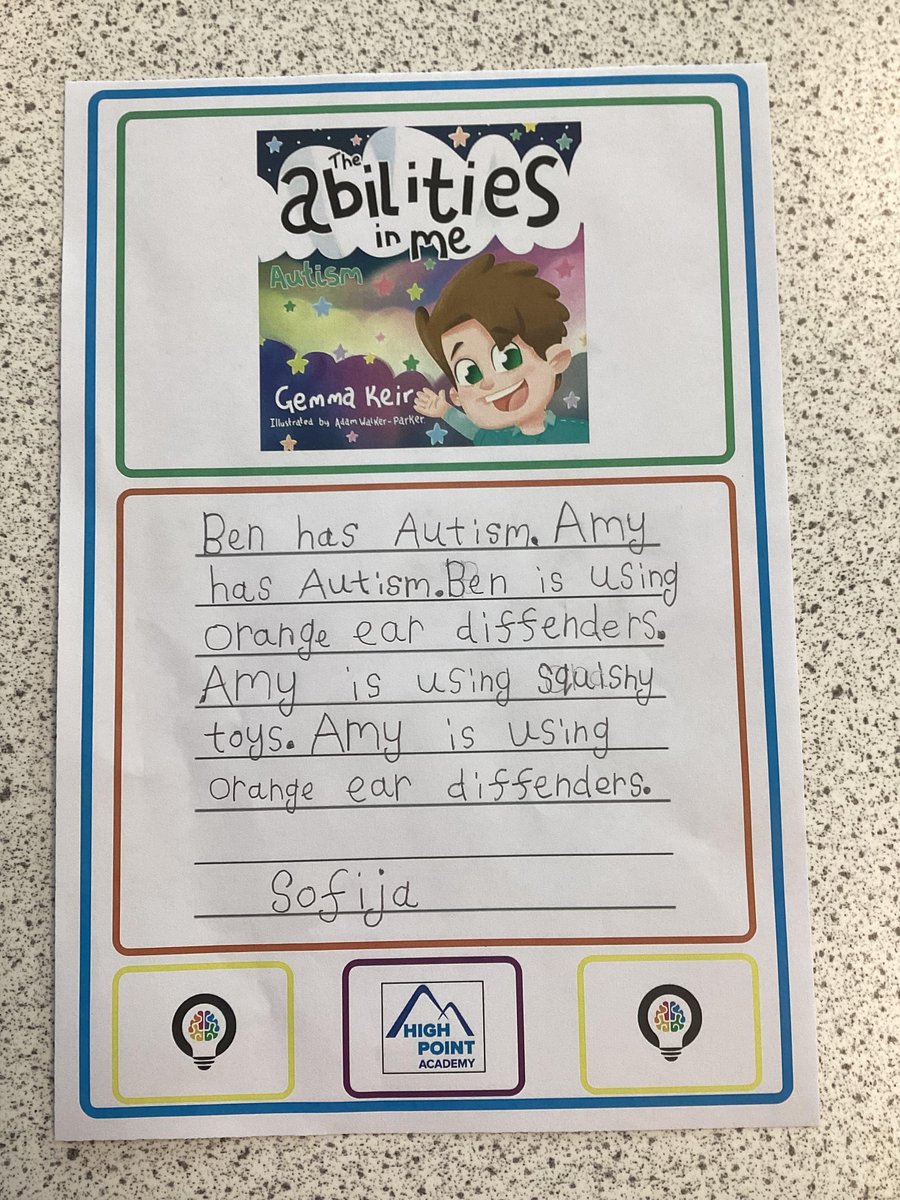 The
abilities
in me
Autism
Gemma Keir
Illustrated by Adam Walker-Parker
Ben has Autism. Amy
has Autism. Ben is using
orange ear diffenders.
Amy is using squishy
toys. Amy is using
orange ear diffenders.
Sofija
HIGH
POINT
ACADEMY